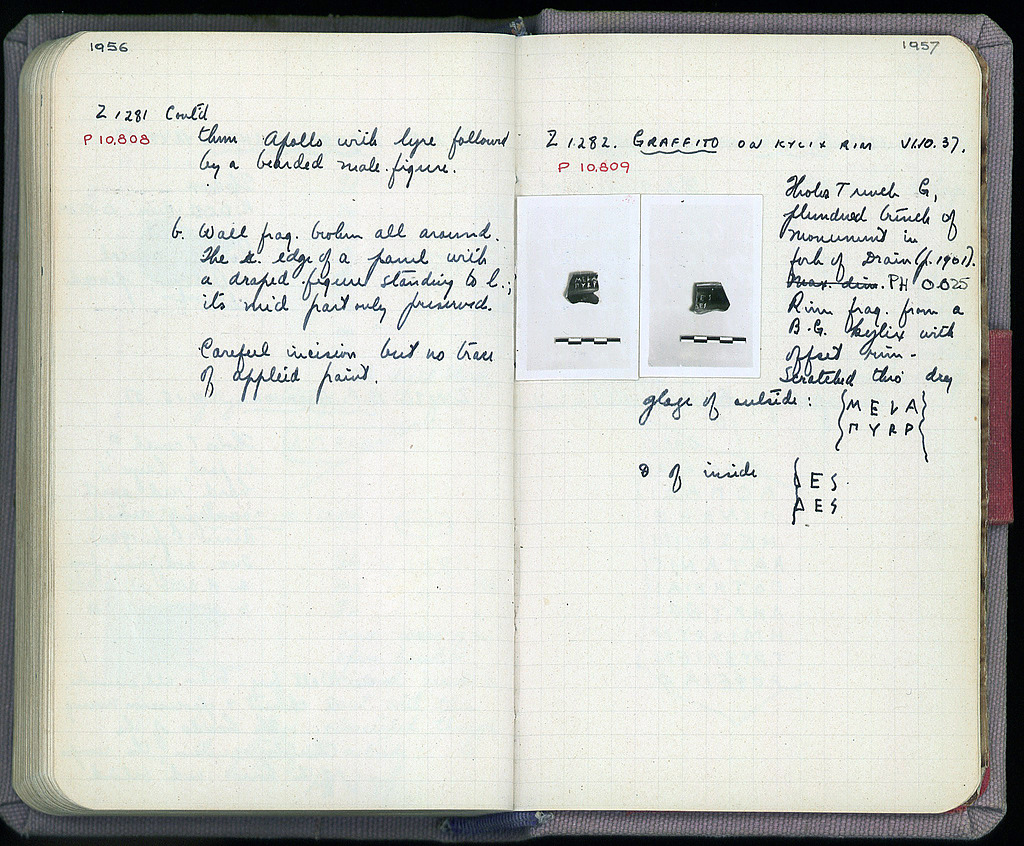 1956
Z 1281 Cont'd
P 10.808
them Apollo with lyre followed
by a bearded male figure.
b. Wall frag. broken all around.
The edge of a panel with
a draped figure standing to l.;
its mid part only preserved.
Careful incision but no trace
of applied paint.
1957
Z 1282. GRAFFITO ON KYLIX RIM VI.10.37.
P 10.809
Trench G,
plundered trench of
monument in
fork of Drain (p. 1901).
Max. dim. PH 0.025
Rim frag. from a
B.G. kylix with
offset rim.
Scratched thro' dry
glaze of outside: {MEΛA}
{ΠYRP}
of inside {ΔES
{ΔES